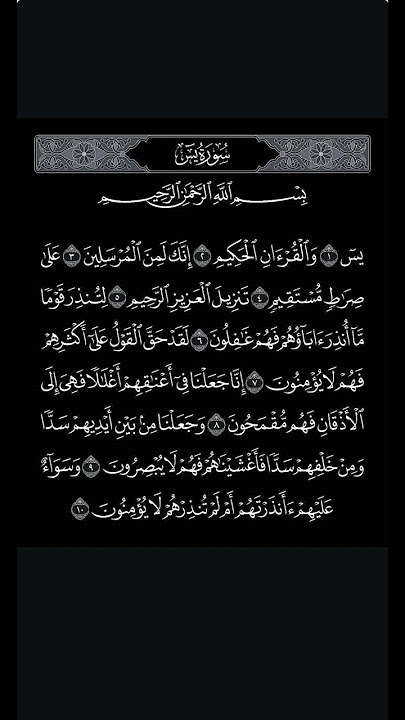 سُورَةُ يسٓ
بِسْمِ اللَّهِ الرَّحْمَٰنِ الرَّحِيمِ
يسٓ ١ وَالْقُرْءَانِ الْحَكِيمِ ٢ إِنَّكَ لَمِنَ الْمُرْسَلِينَ ٣ عَلَىٰ
صِرَاطٍ مُّسْتَقِيمٍ ٤ تَنزِيلَ الْعَزِيزِ الرَّحِيمِ ٥ لِتُنذِرَ قَوْمًا
مَّا أُنذِرَ ءَابَاؤُهُمْ فَهُمْ غَافِلُونَ ٦ لَقَدْ حَقَّ الْقَوْلُ عَلَىٰ أَكْثَرِهِمْ
فَهُمْ لَا يُؤْمِنُونَ ٧ إِنَّا جَعَلْنَا فِي أَعْنَاقِهِمْ أَغْلَالًا فَهِيَ إِلَى
الْأَذْقَانِ فَهُم مُّقْمَحُونَ ٨ وَجَعَلْنَا مِنۢ بَيْنِ أَيْدِيهِمْ سَدًّا
وَمِنْ خَلْفِهِمْ سَدًّا فَأَغْشَيْنَاهُمْ فَهُمْ لَا يُبْصِرُونَ ٩ وَسَوَاءٌ
عَلَيْهِمْ ءَأَنذَرْتَهُمْ أَمْ لَمْ تُنذِرْهُمْ لَا يُؤْمِنُونَ ١٠